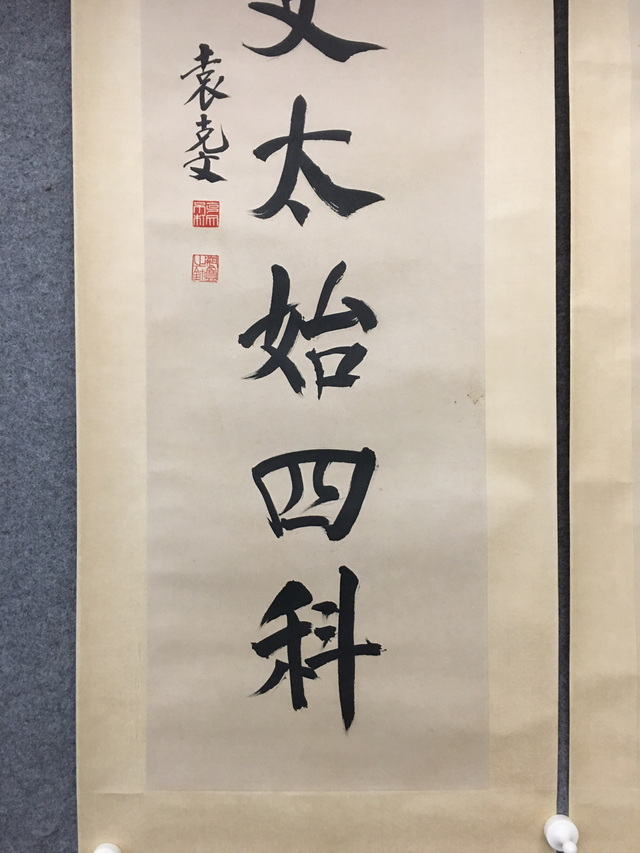 太始四科
袁克文